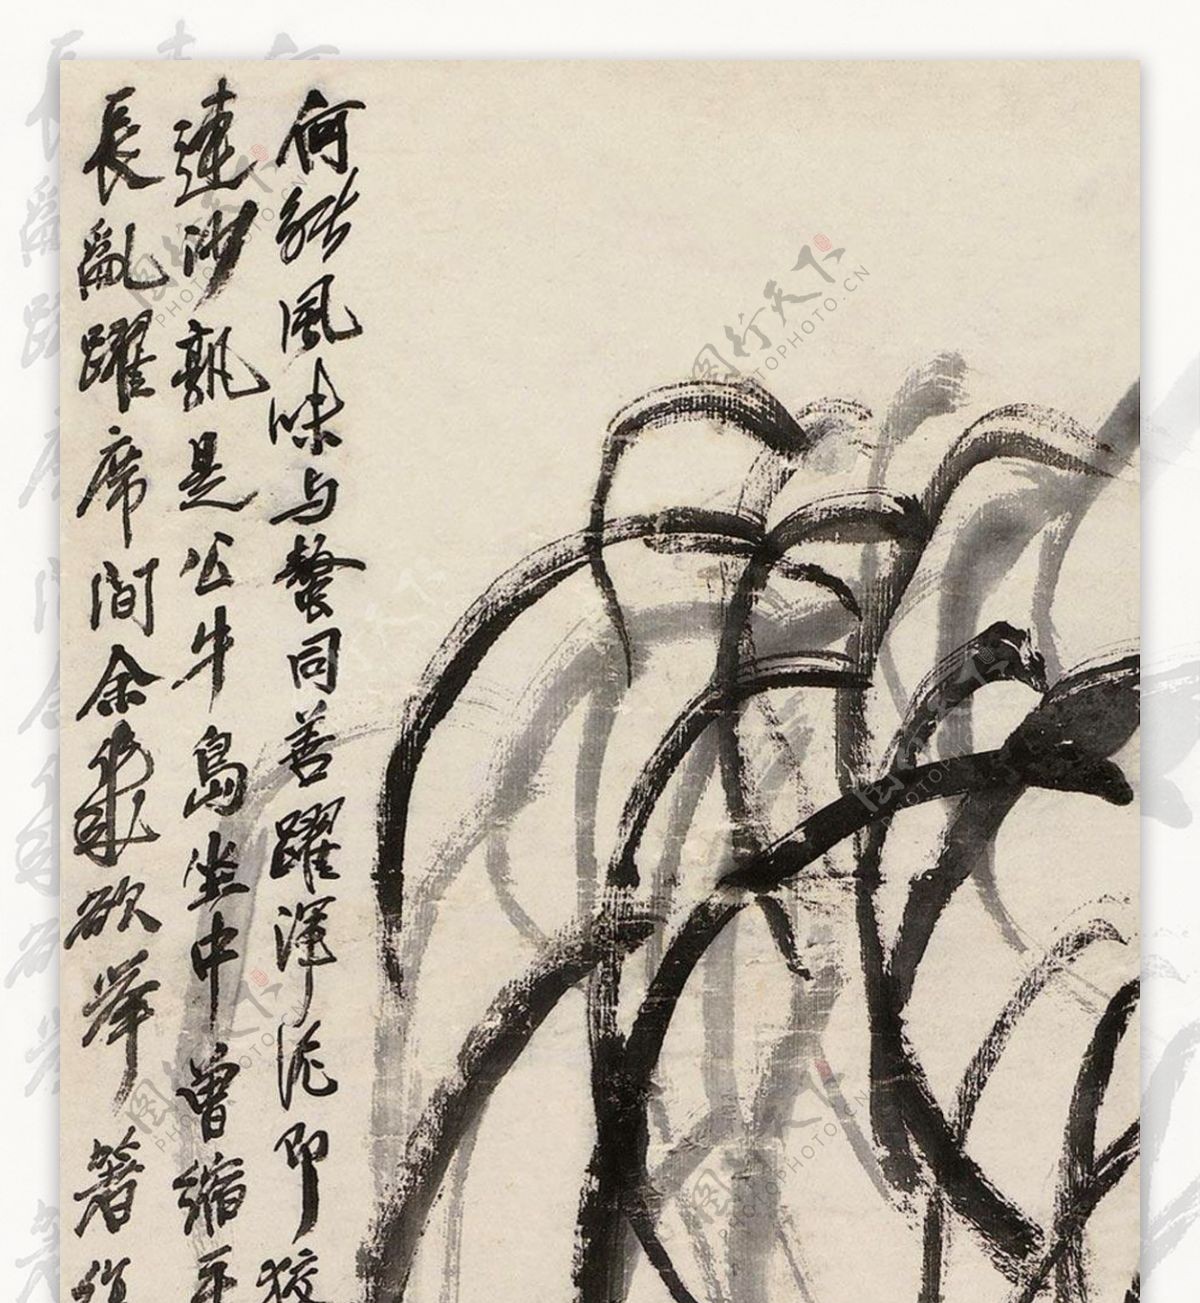 何能風味与螯同善躍渾泥即狡
沙孰是公牛島坐中曾縮手
長亂躍席間余欲举箸
图行天下
PHOTOPHOTO.CN
图行天下
PHOTOPHOTO.CN
图行天下
PHOTOPHOTO.CN
图行天下
PHOTOPHOTO.CN